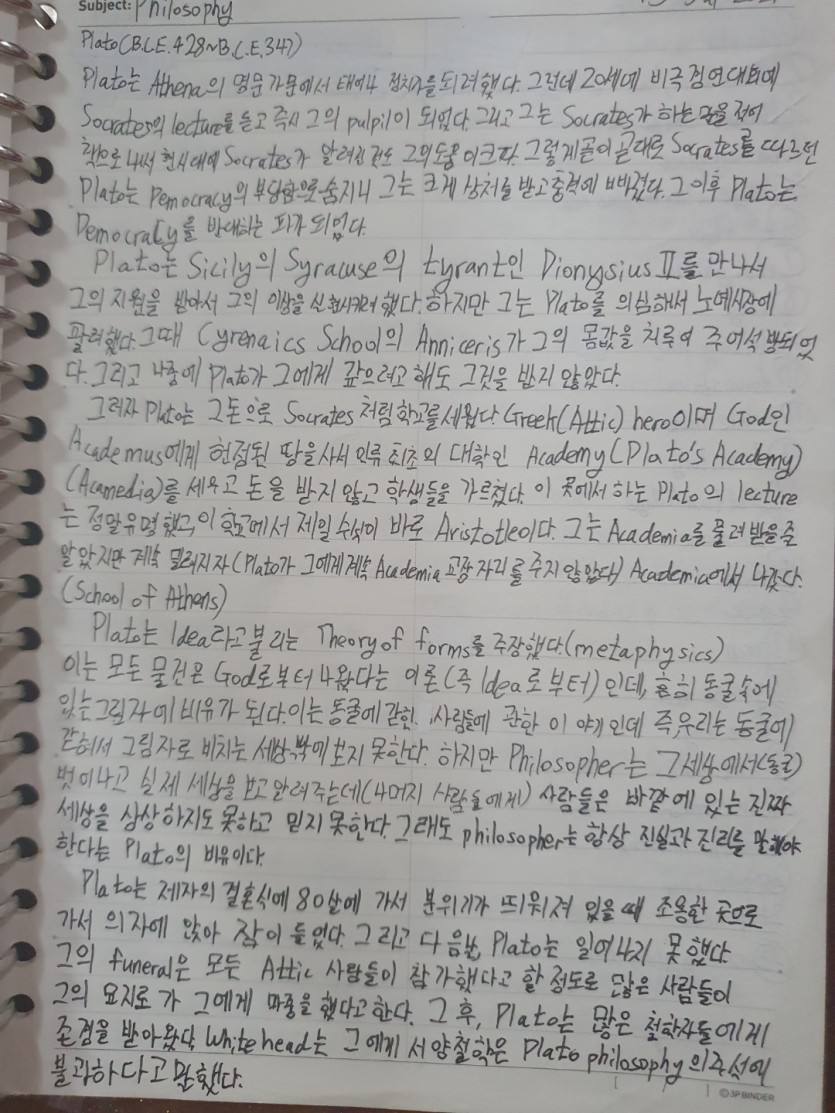 Subject: Philosophy
Plato(B.C.E.428~B.C.E.347)
Plato는 Athena의 명문가문에서 태어나 정치가를 되려했다. 그런데 20세에 비극 경연대회에
Socrates의 lecture를 듣고 즉시 그의 pulpil이 되었다. 그리고 그는 Socrates가 하는 말을 적어
책으로 나써 현시대에 Socrates가 알려진 것도 그의 도움이 크다. 그렇게 곧이 곧대로 Socrates를 따르던
Plato는 Democracy의 부당함으로 숨지니 그는 크게 상처를 받고 충격에 빠졌다. 그 이후 Plato는
Democracy를 반대하는 파가 되었다.
Plato는 Sicily의 Syracuse의 tyrant인 Dionysius II를 만나서
그의 지원을 받아서 그의 이상을 실현시키려 했다. 하지만 그는 Plato를 의심해서 노예시장에
팔려했다. 그때 Cyrenaics School의 Anniceris가 그의 몸값을 치루어 주어 석방되었
다. 그리고 나중에 Plato가 그에게 갚으려고 해도 그것을 받지 않았다.
그러자 Plato는 그 돈으로 Socrates처럼 학교를 세웠다. Greek(Attic) hero이며 God인
Academus에게 헌정된 땅을 사서 인류 최초의 대학인 Academy(Plato's Academy)
(Acamedia)를 세우고 돈을 받지 않고 학생들을 가르쳤다. 이 곳에서 하는 Plato의 lecture
는 정말 유명했고, 이 학교에서 제일 수식이 바로 Aristotle이다. 그는 Academia를 물려 받을 줄
알았지만 계속 밀려지자 (Plato가 그에게 계속 Academia 교장 자리를 주지 않았다) Academia에서 나갔다.
(School of Athens)
Plato는 Idea라고 불리는 Theory of forms를 주장했다.(metaphysics)
이는 모든 물건은 God로부터 나왔다는 이론(즉 Idea로부터)인데, 흔히 동굴속에
있는 그림자에 비유가 된다. 이는 동굴에 갇힌 사람들에 관한 이야기인데 즉 우리는 동굴에
갇혀서 그림자로 비치는 세상밖에 보지 못한다. 하지만 Philosopher는 그 세상에서(동굴)
벗어나고 실제 세상을 보고 알려주는데(나머지 사람들에게) 사람들은 바깥에 있는 진짜
세상을 상상하지도 못하고 믿지 못한다. 그래도 philosopher는 항상 진실과 진리를 말해야
한다는 Plato의 비유이다.
Plato는 제자의 결혼식에 80살에 가서 분위기가 띄워져 있을 때 조용한 곳으로
가서 의자에 앉아 잠이 들었다. 그리고 다음날, Plato는 일어나지 못했다.
그의 funeral은 모든 Attic 사람들이 참가했다고 할 정도로 많은 사람들이
그의 묘지로 가 그에게 마중을 했다고 한다. 그 후, Plato는 많은 철학자들에게
존경을 받아왔다. Whitehead는 그에게 서양철학은 Plato philosophy의 주석에
불과하다고 말했다.
3P BINDER